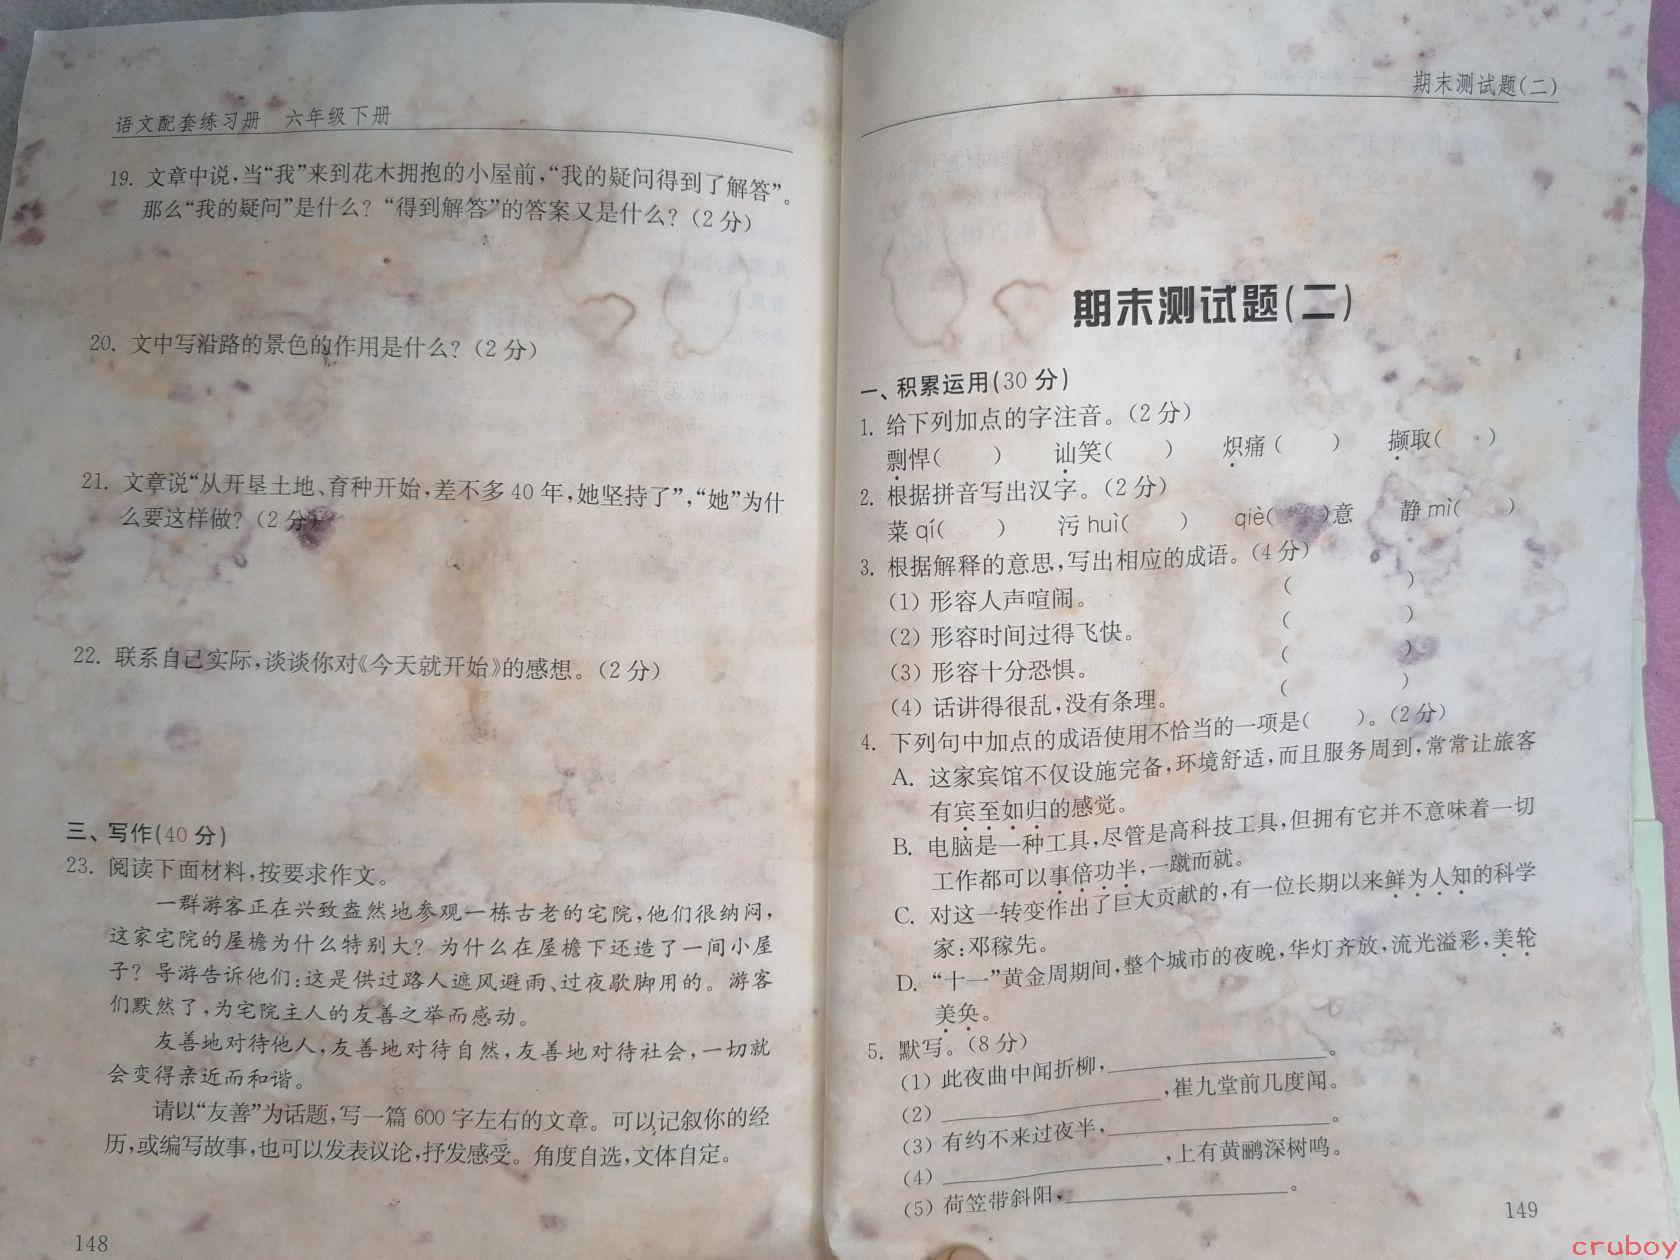 语文配套练习册 六年级下册
19. 文章中说,当“我”来到花木拥抱的小屋前,“我的疑问得到了解答”。
那么“我的疑问”是什么?“得到解答”的答案又是什么?(2分)
20. 文中写沿路的景色的作用是什么?(2分)
21. 文章说“从开垦土地、育种开始,差不多40年,她坚持了”,“她”为什
么要这样做?(2分)
22. 联系自己实际,谈谈你对《今天就开始》的感想。(2分)
三、写作(40分)
23. 阅读下面材料,按要求作文。
一群游客正在兴致盎然地参观一栋古老的宅院,他们很纳闷,
这家宅院的屋檐为什么特别大?为什么在屋檐下还造了一间小屋
子?导游告诉他们:这是供过路人遮风避雨、过夜歇脚用的。游客
们默然了,为宅院主人的友善之举而感动。
友善地对待他人,友善地对待自然,友善地对待社会,一切就
会变得亲近而和谐。
请以“友善”为话题,写一篇600字左右的文章。可以记叙你的经
历,或编写故事,也可以发表议论,抒发感受。角度自选,文体自定。
148
期末测试题(二)
期末测试题(二)
一、积累运用(30分)
1. 给下列加点的字注音。(2分)
剽悍( ) 讪笑( ) 炽痛( ) 撷取( )
2. 根据拼音写出汉字。(2分)
菜qí( ) 污huì( ) qiè( )意 静mì( )
3. 根据解释的意思,写出相应的成语。(4分)
(1) 形容人声喧闹。 ( )
(2) 形容时间过得飞快。 ( )
(3) 形容十分恐惧。 ( )
(4) 话讲得很乱,没有条理。 ( )
4. 下列句中加点的成语使用不恰当的一项是( )。(2分)
A. 这家宾馆不仅设施完备,环境舒适,而且服务周到,常常让旅客
有宾至如归的感觉。
B. 电脑是一种工具,尽管是高科技工具,但拥有它并不意味着一切
工作都可以事倍功半,一蹴而就。
C. 对这一转变作出了巨大贡献的,有一位长期以来鲜为人知的科学
家:邓稼先。
D. “十一”黄金周期间,整个城市的夜晚,华灯齐放,流光溢彩,美轮
美奂。
5. 默写。(8分)
(1) 此夜曲中闻折柳,____________。
(2) ____________,崔九堂前几度闻。
(3) 有约不来过夜半,____________。
(4) ____________,上有黄鹂深树鸣。
(5) 荷笠带斜阳,____________。
149
cruboy